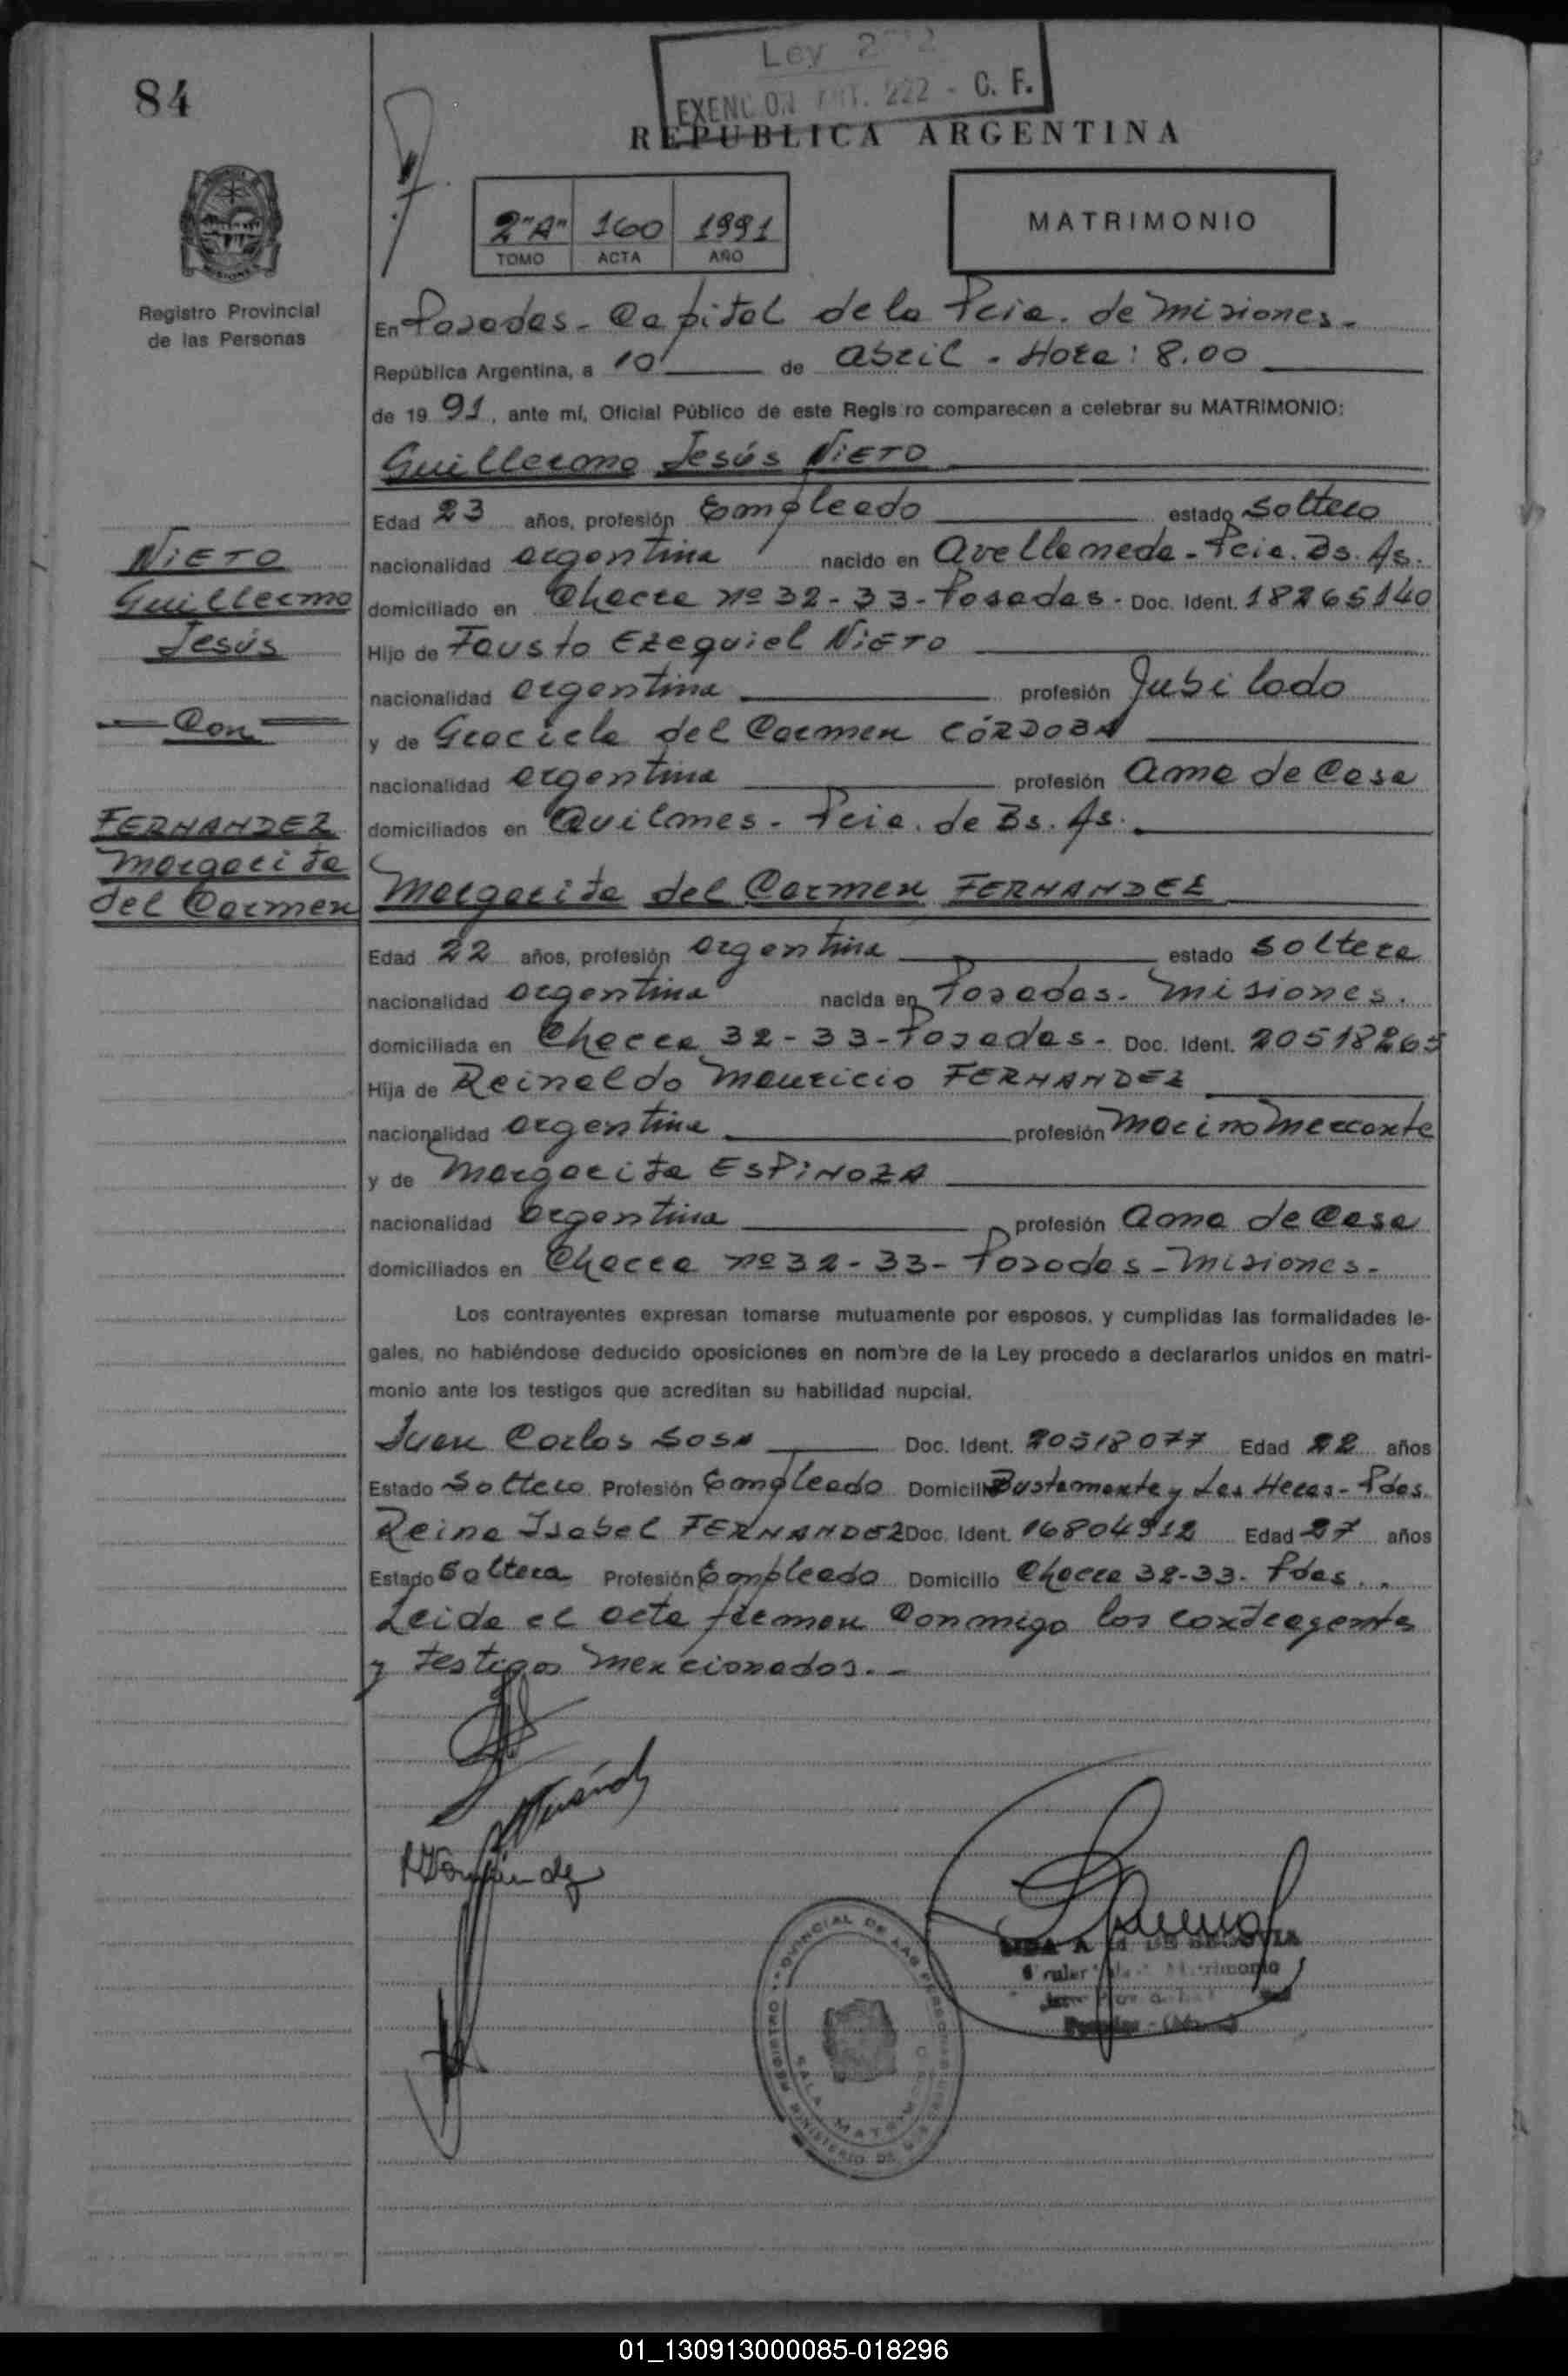 84
Ley
EXENCION ART. 222 - C. F.
REPUBLICA ARGENTINA
2"A" 160 1991
TOMO ACTA AÑO
MATRIMONIO
Registro Provincial
de las Personas
En Posadas - Capital de la Pcia. de Misiones -
República Argentina, a 10 de abril - Hora: 8.00
de 1991, ante mí, Oficial Público de este Registro comparecen a celebrar su MATRIMONIO:
Guillermo Jesús NIETO
Edad 23 años, profesión Empleado estado soltero
nacionalidad argentina nacido en Avellaneda - Pcia. Bs. As.
domiciliado en Chacra nº 32-33-Posadas - Doc. Ident. 18265140
Hijo de Fausto Ezequiel NIETO
nacionalidad argentina profesión Jubilado
y de Graciela del Carmen CÓRDOBA
nacionalidad argentina profesión ama de Casa
domiciliados en Quilmes - Pcia. de Bs. As.
NIETO
Guillermo
Jesús
Con
FERNANDEZ
Margarita
del Carmen
Margarita del Carmen FERNANDEZ
Edad 22 años, profesión argentina estado soltera
nacionalidad argentina nacida en Posadas - Misiones.
domiciliada en Chacra 32-33-Posadas - Doc. Ident. 20518265
Hija de Reinaldo Mauricio FERNANDEZ
nacionalidad argentina profesión Marino Mercante
y de Margarita ESPINOZA
nacionalidad argentina profesión ama de Casa
domiciliados en Chacra nº 32-33- Posadas - Misiones -
Los contrayentes expresan tomarse mutuamente por esposos, y cumplidas las formalidades le-
gales, no habiéndose deducido oposiciones en nombre de la Ley procedo a declararlos unidos en matri-
monio ante los testigos que acreditan su habilidad nupcial.
Juan Carlos SOSA Doc. Ident. 20518077 Edad 22 años
Estado Soltero Profesión Empleado Domicilio Bustamante y Las Heras - Pdas.
Reina Isabel FERNANDEZ Doc. Ident. 16804912 Edad 27 años
Estado Soltera Profesión Empleado Domicilio Chacra 32-33- Pdas.
Leida el acta firman conmigo los contrayentes
y testigos mencionados. -
REGISTRO PROVINCIAL DE LAS PERSONAS
SALA MATRIMONIO
MINISTERIO DE
01_130913000085-018296